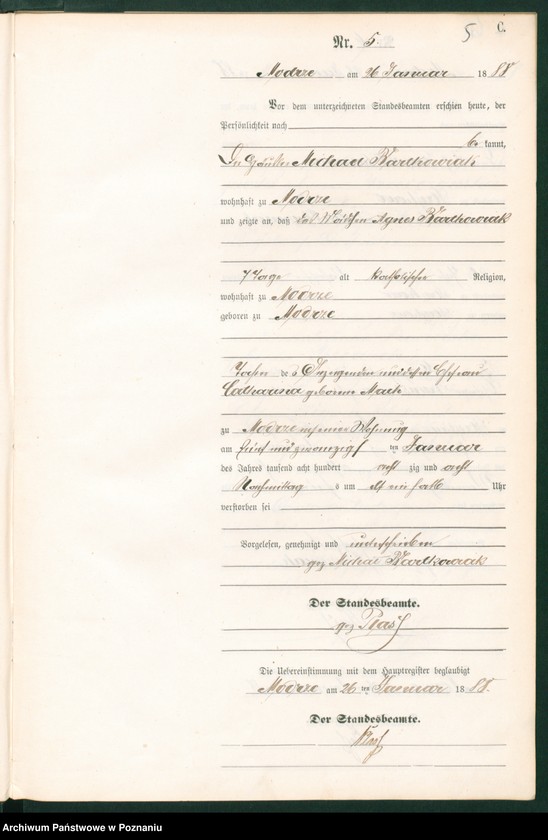 5 C.
Nr. 5.
Modrze am 26 Januar 1888
Vor dem unterzeichneten Standesbeamten erschien heute, der
Persönlichkeit nach
be kannt,
Michael Bartkowiak
wohnhaft zu Modrze
und zeigte an, daß das Mädchen Agnes Bartkowiak
7 Tage alt katholischer Religion,
wohnhaft zu Modrze
geboren zu Modrze
Tochter de s Anzeigenden und dessen Ehefrau
Catharina geborene
zu Modrze in seiner Wohnung
am fünf und zwanzigsten Januar
des Jahres tausend acht hundert acht zig und acht
Vormittag s um elf ein halb Uhr
verstorben sei
Vorgelesen, genehmigt und unterschrieben
gez Michael Bartkowiak
Der Standesbeamte.
gez
Die Uebereinstimmung mit dem Hauptregister beglaubigt
Modrze am 26 ten Januar 1888.
Der Standesbeamte.
Archiwum Państwowe w Poznaniu